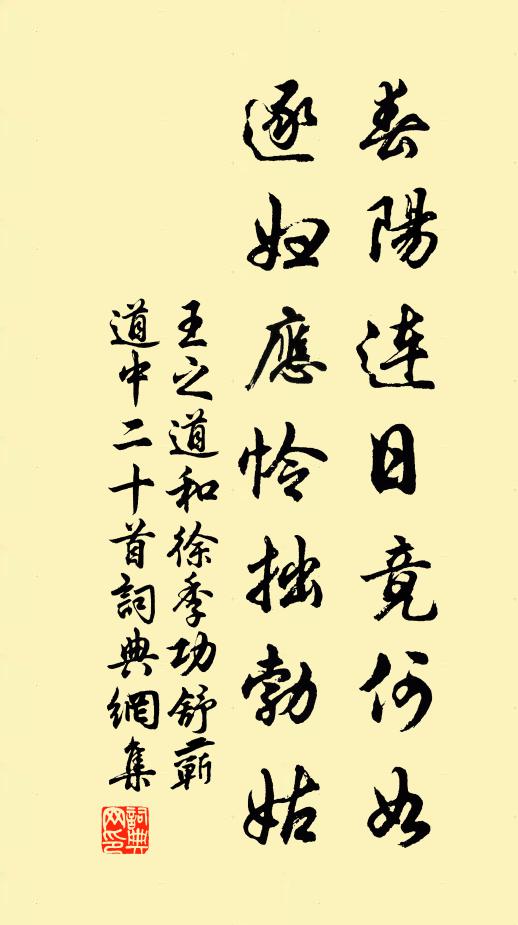 春陽連日竟何如
逐婦應怜拙勃姑
王之道和徐季功舒蘄
道中二十首詞典網集